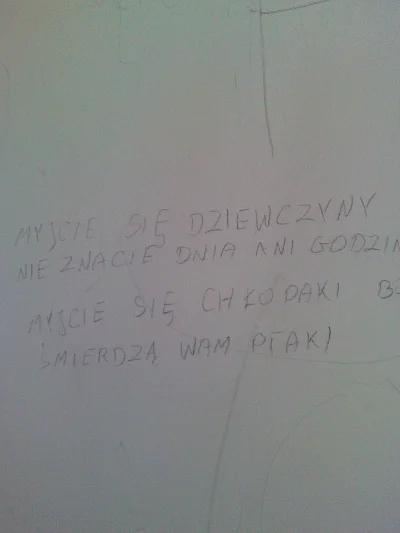 MYJCIE SIĘ DZIEWCZYNY
NIE ZNACIE DNIA ANI GODZIN
MYJCIE SIĘ CHŁODAKI BO
ŚMIERDZĄ WAM PTAKI